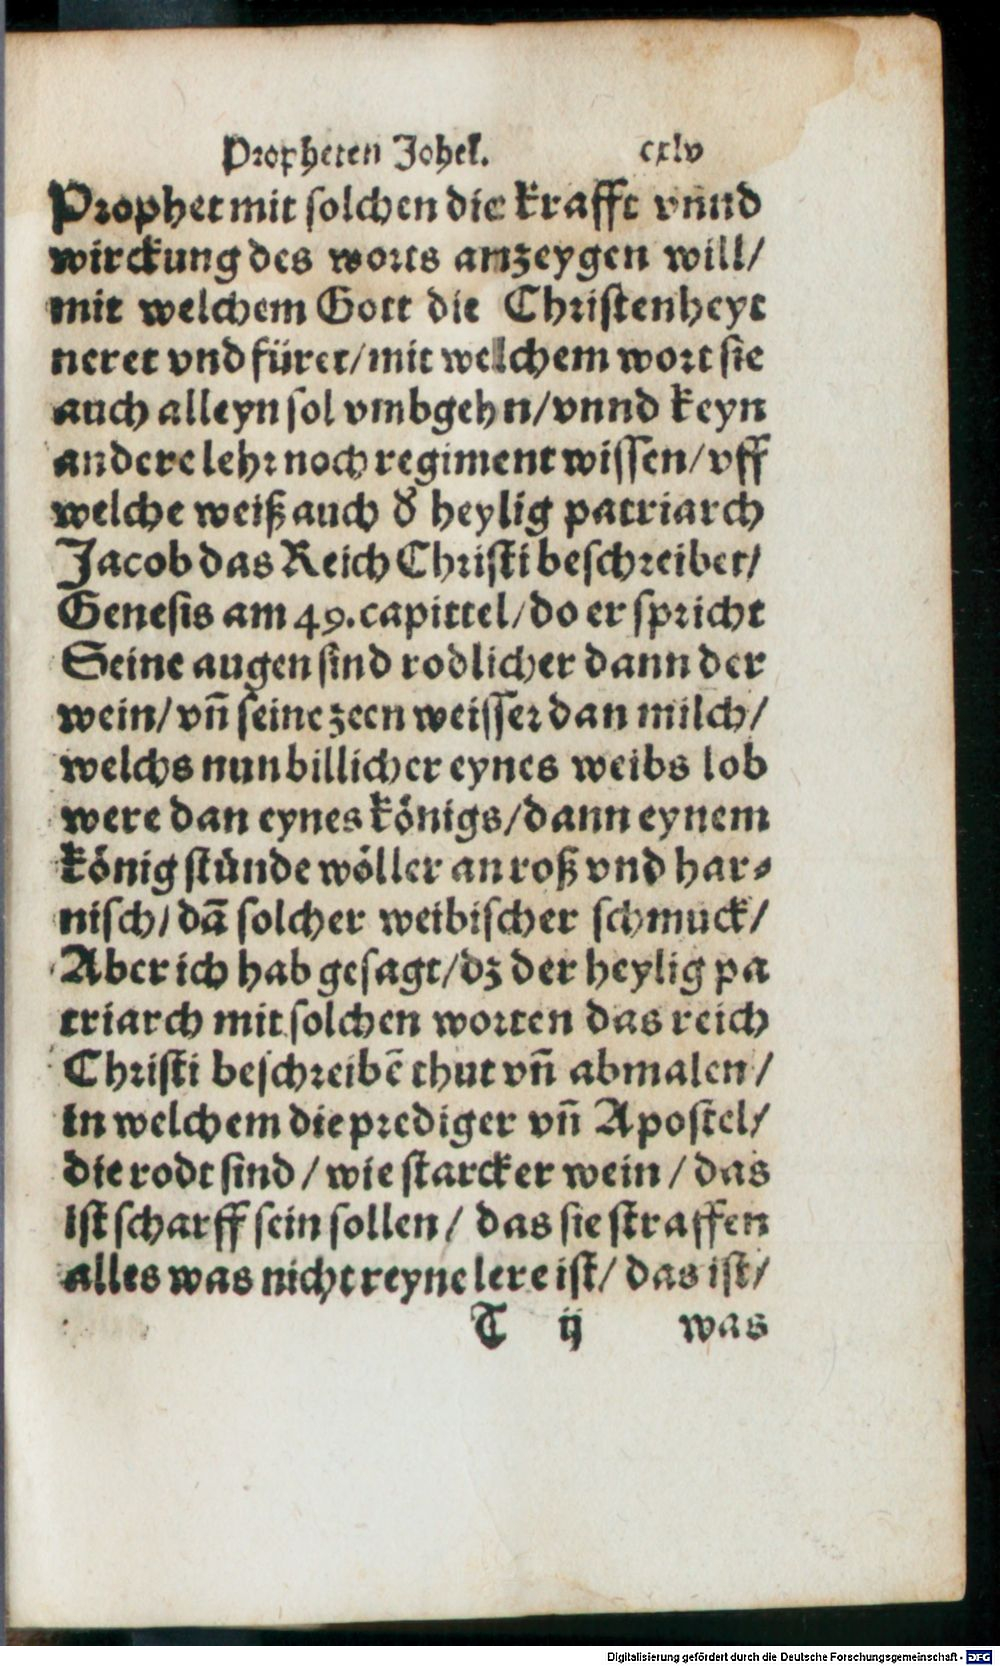 Propheten Johel. cxlv
Prophet mit solchen die krafft vnnd
wirckung des worts anzeygen will/
mit welchem Gott die Christenheyt
neret vnd füret/mit welchem wort sie
auch alleyn sol vmbgehn/vnnd keyn
andere lehr noch regiment wissen/vff
welche weiß auch d᷑ heylig patriarch
Jacob das Reich Christi beschreibet/
Genesis am 49.capittel/do er spricht
Seine augen sind rodlicher dann der
wein/vñ seine zeen weisser dan milch/
welchs nun billicher eynes weibs lob
were dan eynes königs/dann eynem
könig stünde wöller an roß vnd har⸗
nisch/dā solcher weibischer schmuck/
Aber ich hab gesagt/dz der heylig pa
triarch mit solchen worten das reich
Christi beschreibē thut vñ abmalen/
in welchem die prediger vñ Apostel/
die rodt sind/wie starcker wein/das
ist scharff sein sollen/das sie straffen
alles was nicht reyne lere ist/das ist/
T ij was
Digitalisierung gefördert durch die Deutsche Forschungsgemeinschaft - DFG